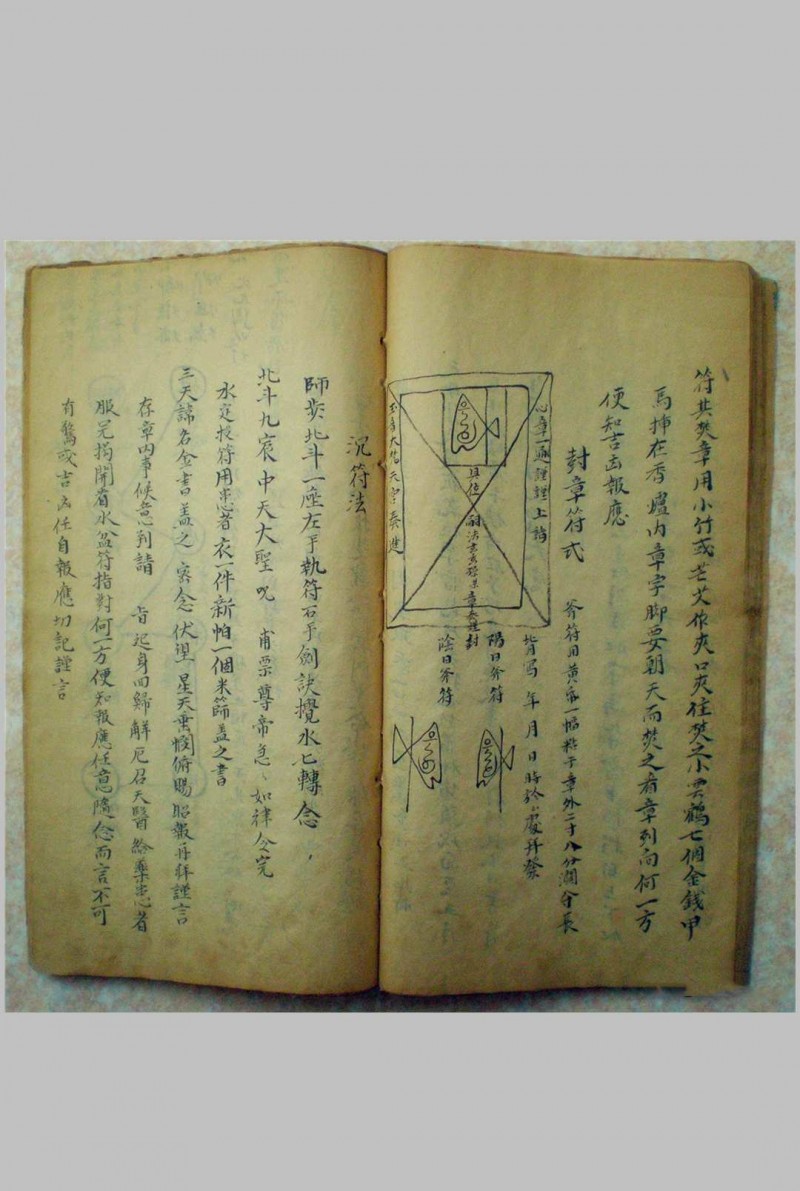 符其焚章用小竹或芒艾作夾口夾住焚之小雲鶴七個金錢甲
馬挿在香爐內章字脚要朝天而焚之看章列向何一方
便知吉凶報應
封章符式
斧符用黃帋一幅粘于章外二寸八分濶分長
皆寫年月日時於處拜發
陽日斧符
陰日斧符
心章一通謹謹上詣
具位
章奏謹封
沉符法
師步北斗一座左手執符右手劍訣攪水七轉念
北斗九宸中天大聖 咒 甫票尊帝急、如律令完
水定投符用患者衣一件新怕一個米篩蓋之書
三天諱名金書蓋之 密念伏望 星天垂憫俯賜昭報再拜謹言
存章內事候意到請 旨起身回歸解厄召天醫給藥患者
服完揭開看水盆符指對何一方便知報應任意隨念而言不可
有驚或吉凶任自報應切記謹言